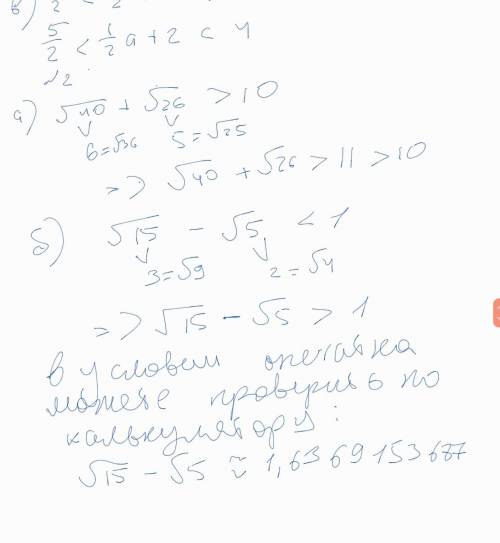 в) 2 < 2
5/2 < 1/2 a + 2 < 4
№2.
а) √40 + √26 > 10
6=√36 5=√25
=> √40 + √26 > 11 > 10
б) √15 - √5 < 1
3=√9 2=√4
=> √15 - √5 > 1
в условии опечатка
можете проверить по
калькулятору:
√15 - √5 ≈ 1,6369153687